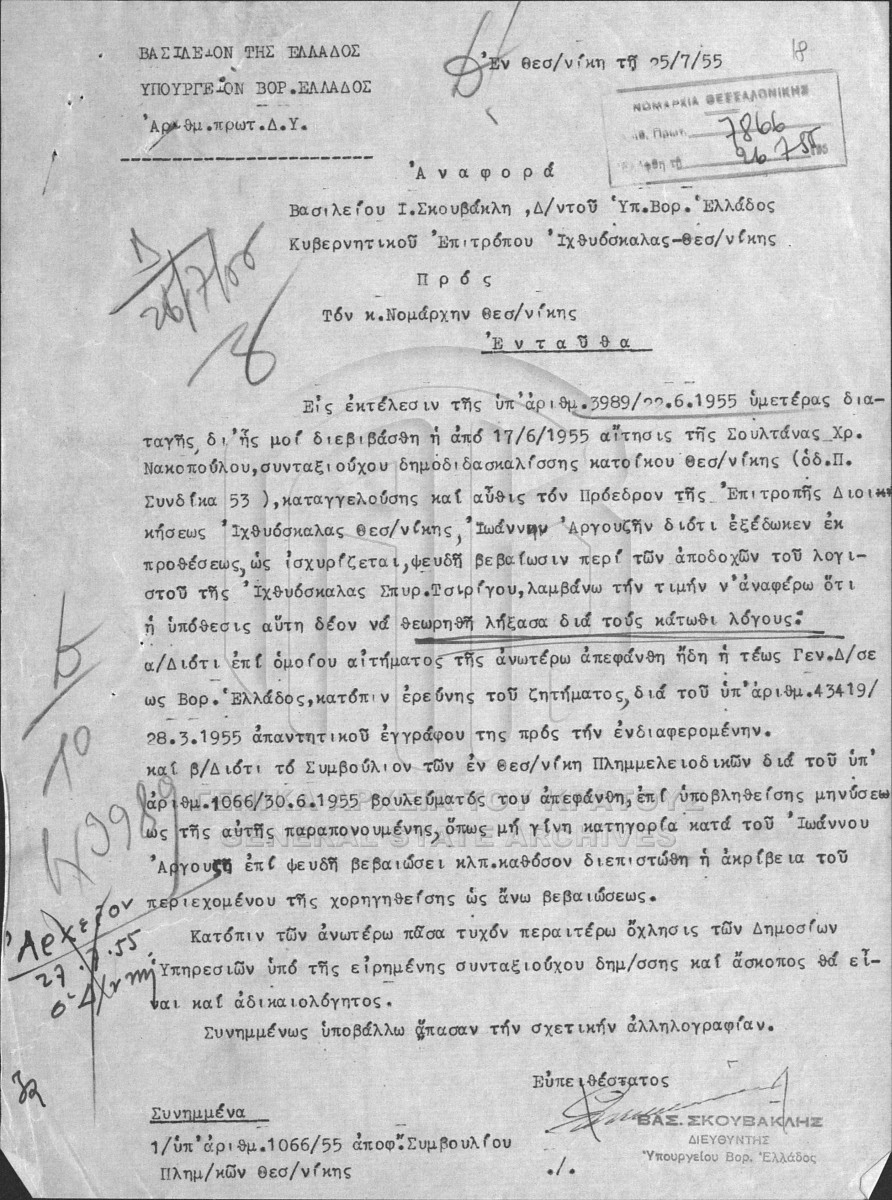 ΒΑΣΙΛΕΙΟΝ ΤΗΣ ΕΛΛΑΔΟΣ
ΥΠΟΥΡΓΕΙΟΝ ΒΟΡ.ΕΛΛΑΔΟΣ
Ἀριθμ.πρωτ.Δ.Υ.
Ἐν Θεσ/νίκη τῇ 25/7/55
18
ΝΟΜΑΡΧΙΑ ΘΕΣΣΑΛΟΝΙΚΗΣ
Πρωτ. 7866
26 7 55
Ἀναφορά
Βασιλείου Ι.Σκουβάκλη ,Δ/ντοῦ Ὑπ.Βορ.Ἑλλάδος
Κυβερνητικοῦ Ἐπιτρόπου Ἰχθυόσκαλας-Θεσ/νίκης
Πρός
Τόν κ.Νομάρχην Θεσ/νίκης
Ἐνταῦθα
26/7/55
Εἰς ἐκτέλεσιν τῆς ὑπ'ἀριθμ.3989/22.6.1955 ὑμετέρας δια-
ταγῆς,δι'ἧς μοί διεβιβάσθη ἡ ἀπό 17/6/1955 αἴτησις τῆς Σουλτάνας Χρ.
Νακοπούλου,συνταξιούχου δημοδιδασκαλίσσης κατοίκου Θεσ/νίκης (ὁδ.Π.
Συνδίκα 53 ),καταγγελούσης καί αὖθις τόν Πρόεδρον τῆς Ἐπιτροπῆς Διοι-
κήσεως Ἰχθυόσκαλας Θεσ/νίκης,Ἰωάννην Ἀργουζῆν διότι ἐξέδωκεν ἐκ
προθέσεως,ὡς ἰσχυρίζεται,ψευδῆ βεβαίωσιν περί τῶν ἀποδοχῶν τοῦ λογι-
στοῦ τῆς Ἰχθυόσκαλας Σπυρ.Τσιρίγου,λαμβάνω τήν τιμήν ν'ἀναφέρω ὅτι
ἡ ὑπόθεσις αὕτη δέον νά θεωρηθῆ λήξασα διά τούς κάτωθι λόγους:
α/Διότι ἐπί ὁμοίου αἰτήματος τῆς ἀνωτέρω ἀπεφάνθη ἤδη ἡ τέως Γεν.Δ/σε
ως Βορ.Ἑλλάδος,κατόπιν ἐρεύνης τοῦ ζητήματος,διά τοῦ ὑπ'ἀριθμ.43419/
28.3.1955 ἀπαντητικοῦ ἐγγράφου της πρός τήν ἐνδιαφερομένην.
καί β/Διότι τό Συμβούλιον τῶν ἐν Θεσ/νίκη Πλημμελειοδικῶν διά τοῦ ὑπ'
ἀριθμ.1066/30.6.1955 βουλεύματός του ἀπεφάνθη,ἐπί ὑποβληθείσης μηνύσεω
ως τῆς αὐτῆς παραπονουμένης,ὅπως μή γίνη κατηγορία κατά τοῦ Ἰωάννου
Ἀργουζῆ ἐπί ψευδῆ βεβαιώσει κλπ.καθόσον διεπιστώθη ἡ ἀκρίβεια τοῦ
περιεχομένου τῆς χορηγηθείσης ὡς ἄνω βεβαιώσεως.
Κατόπιν τῶν ἀνωτέρω πᾶσα τυχόν περαιτέρω ὄχλησις τῶν Δημοσίων
Ὑπηρεσιῶν ὑπό τῆς εἰρημένης συνταξιούχου δημ/σσης καί ἄσκοπος θά εἶ-
ναι καί ἀδικαιολόγητος.
Συνημμένως ὑποβάλλω ἅπασαν τήν σχετικήν ἀλληλογραφίαν.
ΓΕΝΙΚΑ ΑΡΧΕΙΑ ΤΟΥ ΚΡΑΤΟΥΣ
GENERAL STATE ARCHIVES
10
Ἀρχεῖον
27.7.55
Εὐπειθέστατος
ΒΑΣ. ΣΚΟΥΒΑΚΛΗΣ
ΔΙΕΥΘΥΝΤΗΣ
Ὑπουργείου Βορ. Ἑλλάδος
Συνημμένα
1/ὑπ'ἀριθμ.1066/55 ἀποφ.Συμβουλίου
Πλημ/κῶν Θεσ/νίκης
./.